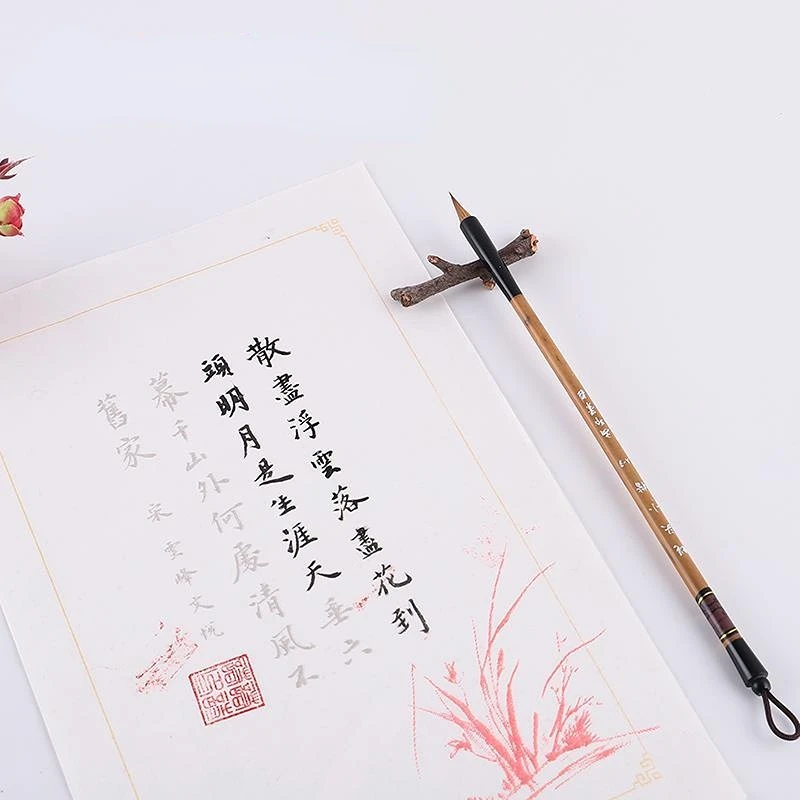 散盡浮雲落盡花到
頭明月是生涯天垂六
幕千山外何處清風不
舊家
宋雲峰文悅